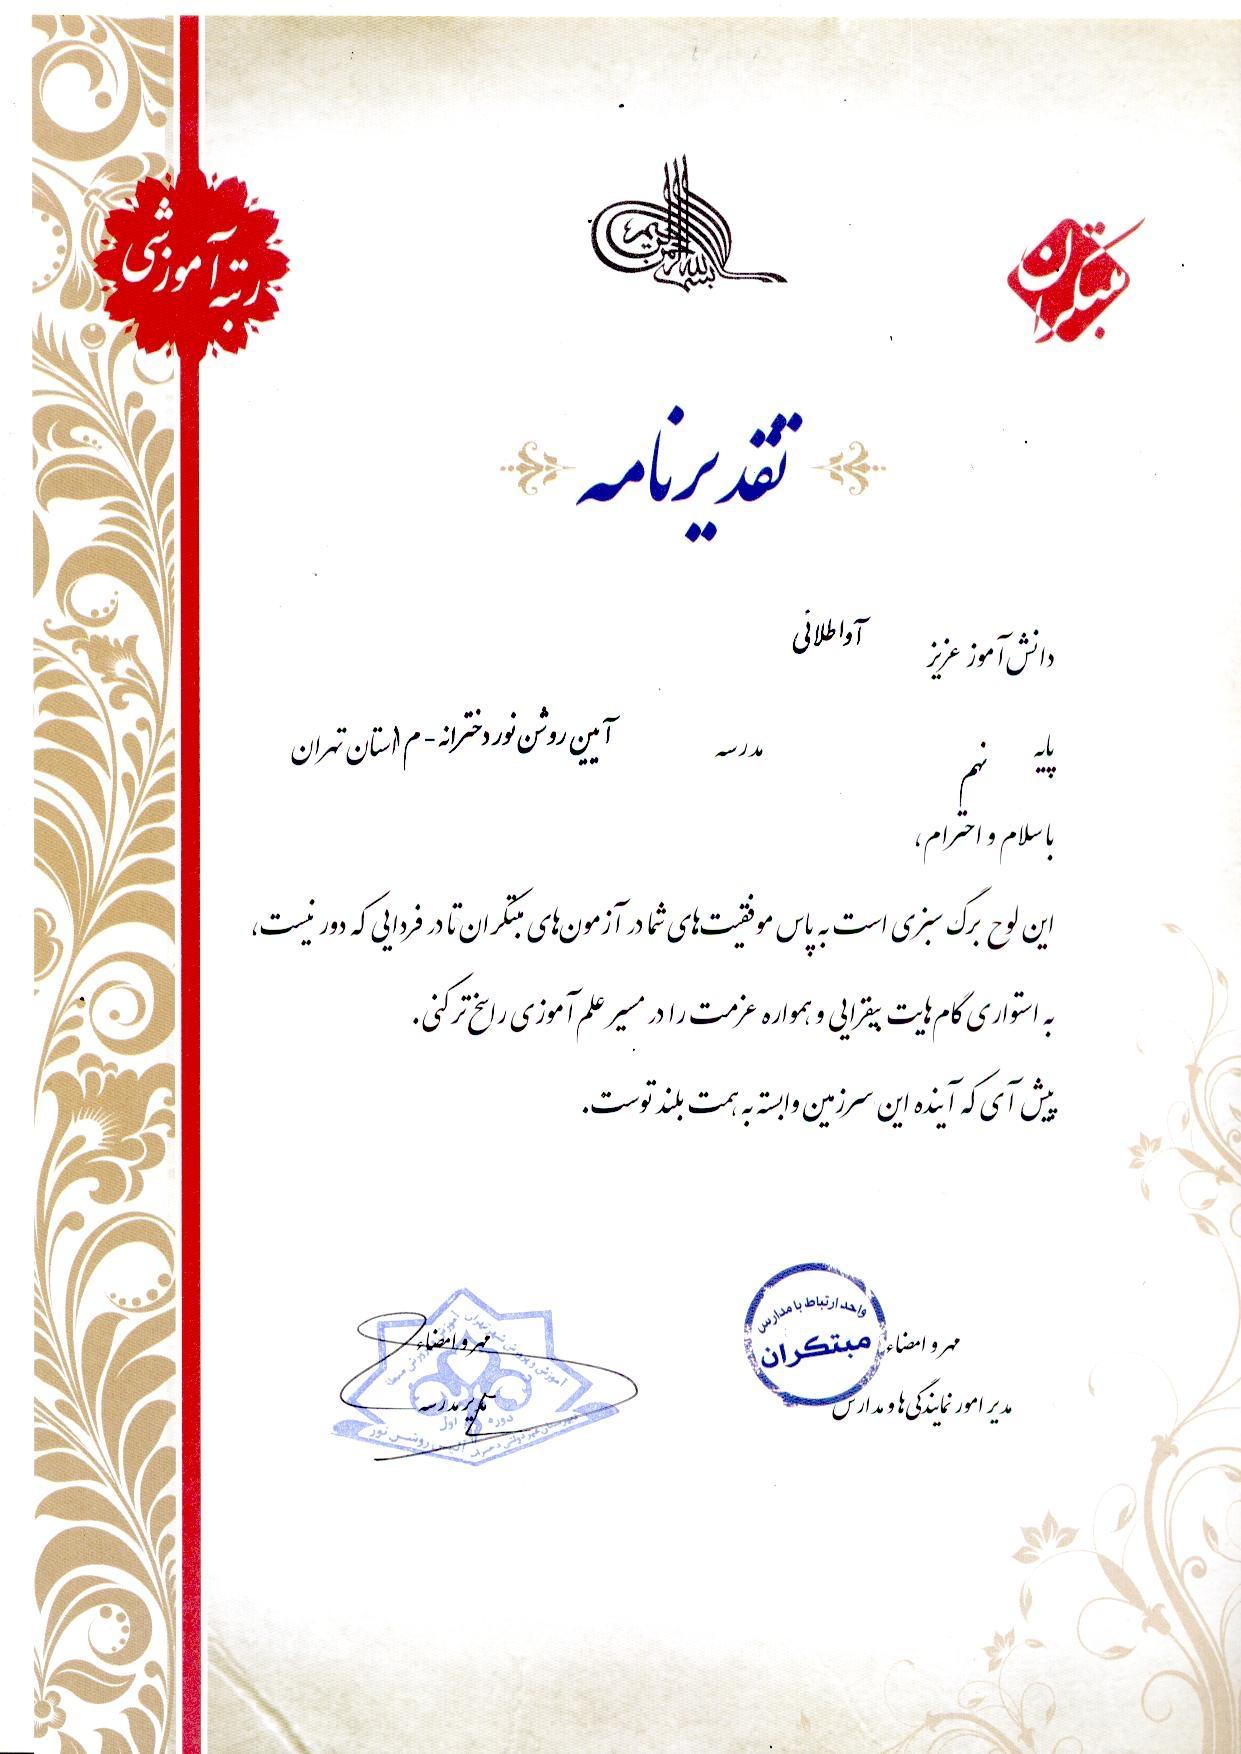 بسم الله الرحمن الرحیم
مبتکران
رتبه آموزشی
تقدیرنامه
دانش آموز عزیز آوا طلائی
پایه نهم مدرسه آیین روشن نور دخترانه - م۱ استان تهران
با سلام و احترام،
این لوح برگ سبزی است به پاس موفقیت‌های شما در آزمون‌های مبتکران تا در فردایی که دور نیست،
به استواری گام‌هایت بیفزایی و همواره عزمت را در مسیر علم آموزی راسخ‌تر کنی.
پیش آی که آینده این سرزمین وابسته به همت بلند توست.
مهر و امضاء
مدیر امور نمایندگی‌ها و مدارس
واحد ارتباط با مدارس
مبتکران
مهر و امضاء
مدیر مدرسه
دوره اول
روشن نور